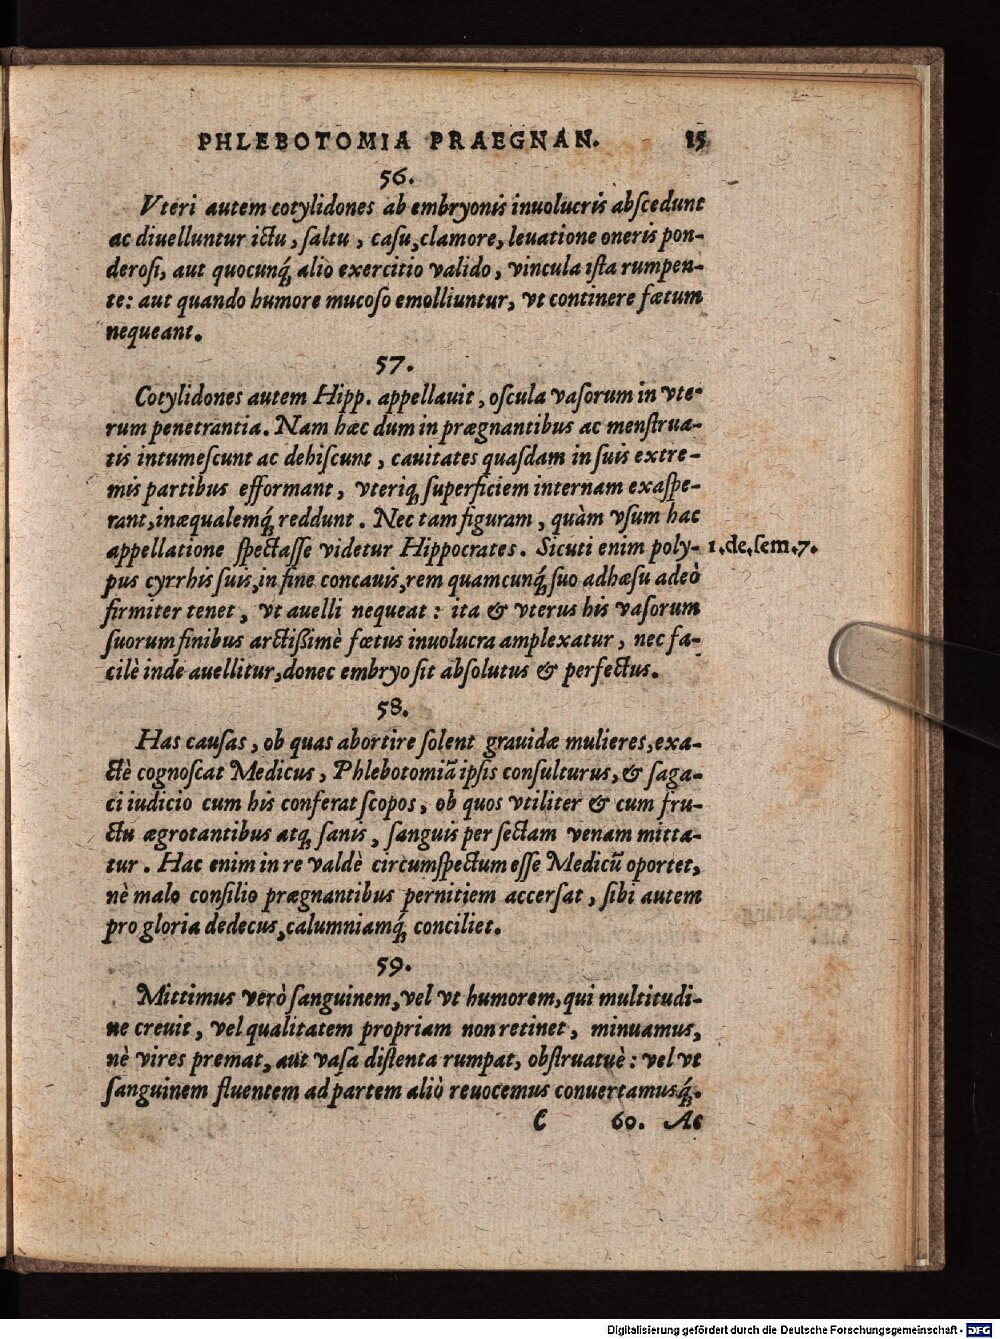 PHLEBOTOMIA PRAEGNAN. 15
56.
Vteri autem cotylidones ab embryonis inuolucris abſcedunt
ac diuelluntur ictu, ſaltu, caſu, clamore, leuatione oneris pon-
deroſi, aut quocunq́; alio exercitio valido, vincula iſta rumpen-
te: aut quando humore mucoſo emolliuntur, vt continere fœtum
nequeant.
57.
Cotylidones autem Hipp. appellauit, oſcula vaſorum in vte-
rum penetrantia. Nam hæc dum in prægnantibus ac menſtrua-
tis intumeſcunt ac dehiſcunt, cauitates quaſdam in ſuis extre-
mis partibus efformant, vteriq; ſuperficiem internam exaſpe-
rant, inæqualemq́; reddunt. Nec tam figuram, quàm vſum hac
appellatione ſpectaſſe videtur Hippocrates. Sicuti enim poly- 1. de. ſem. 7.
pus cyrrhis ſuis, in fine concauis, rem quamcunq́; ſuo adhæſu adeò
firmiter tenet, vt auelli nequeat: ita & vterus his vaſorum
ſuorum finibus arctißimè fœtus inuolucra amplexatur, nec fa-
cilè inde auellitur, donec embryo ſit abſolutus & perfectus.
58.
Has cauſas, ob quas abortire ſolent grauidæ mulieres, exa-
ctè cognoſcat Medicus, Phlebotomiã ipſis conſulturus, & ſaga-
ci iudicio cum his conferat ſcopos, ob quos vtiliter & cum fru-
ctu ægrotantibus atq; ſanis, ſanguis per ſectam venam mitta-
tur. Hac enim in re valdè circumſpectum eſſe Medicũ oportet,
nè malo conſilio prægnantibus pernitiem accerſat, ſibi autem
pro gloria dedecus, calumniamq́; conciliet.
59.
Mittimus verò ſanguinem, vel vt humorem, qui multitudi-
ne creuit, vel qualitatem propriam non retinet, minuamus,
nè vires premat, aut vaſa diſtenta rumpat, obſtruatuè: vel vt
ſanguinem fluentem ad partem aliò reuocemus conuertamusq́;.
C 60. Ac
Digitalisierung gefördert durch die Deutsche Forschungsgemeinschaft - DFG